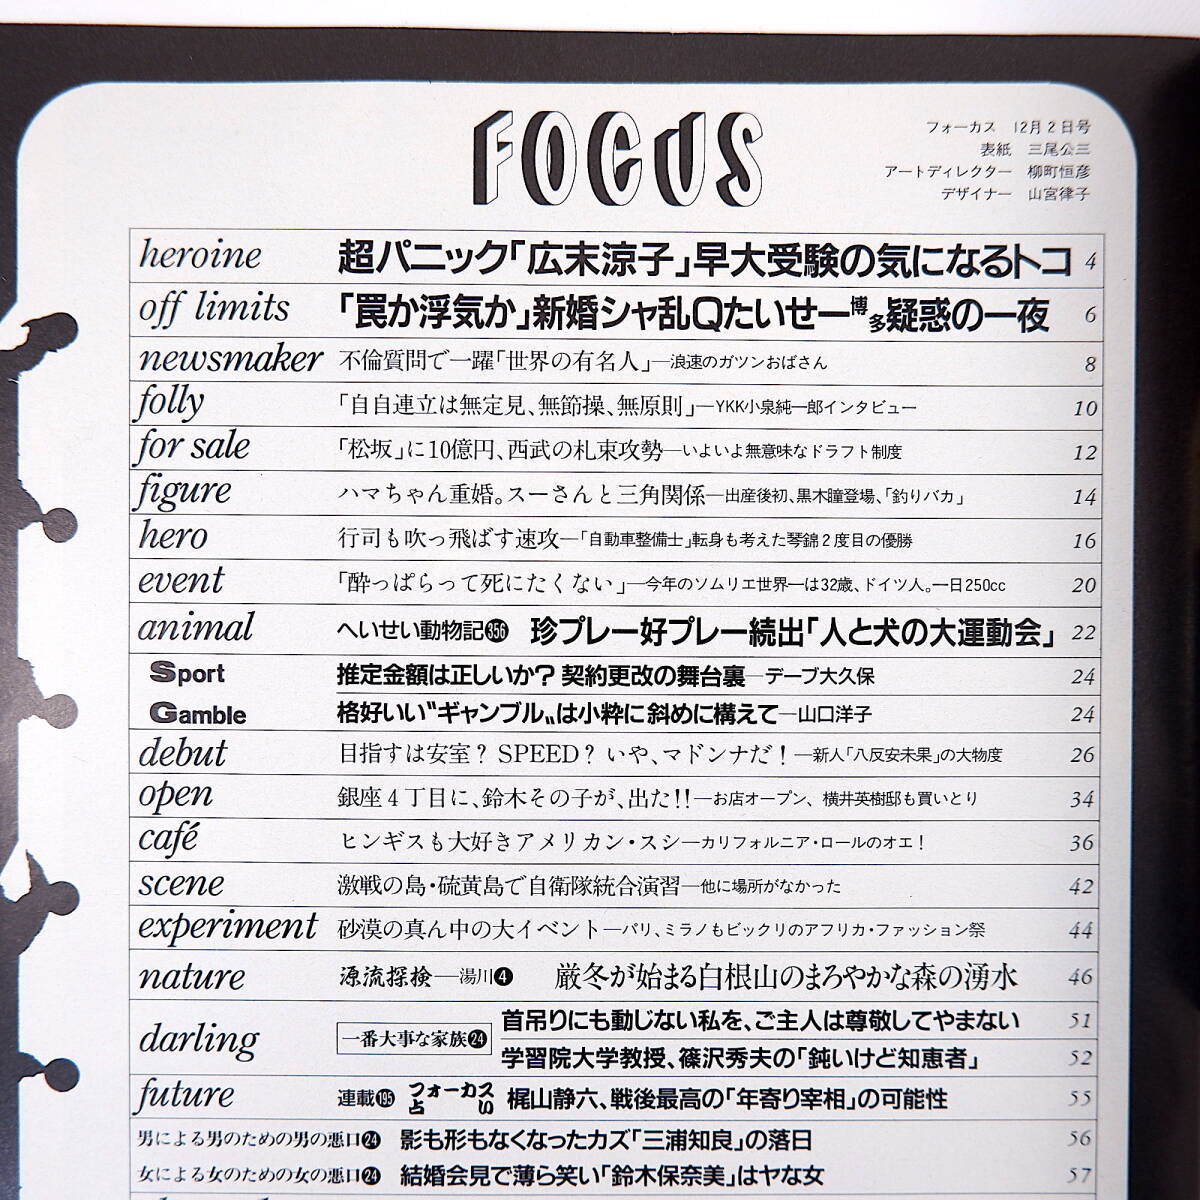 FOCUS
フォーカス 12月2日号
表紙 三尾公三
アートディレクター 柳町恒彦
デザイナー 山宮律子
heroine 超パニック「広末涼子」早大受験の気になるトコ 4
off limits 「罠か浮気か」新婚シャ乱Qたいせー博多疑惑の一夜 6
newsmaker 不倫質問で一躍「世界の有名人」―浪速のガツンおばさん 8
folly 「自自連立は無定見、無節操、無原則」―YKK小泉純一郎インタビュー 10
for sale 「松坂」に10億円、西武の札束攻勢―いよいよ無意味なドラフト制度 12
figure ハマちゃん重婚。スーさんと三角関係―出産後初、黒木瞳登場、「釣りバカ」 14
hero 行司も吹っ飛ばす速攻―「自動車整備士」転身も考えた琴錦2度目の優勝 16
event 「酔っぱらって死にたくない」―今年のソムリエ世界一は32歳、ドイツ人。一日250cc 20
animal へいせい動物記356 珍プレー好プレー続出「人と犬の大運動会」 22
Sport 推定金額は正しいか？ 契約更改の舞台裏―デーブ大久保 24
Gamble 格好いい〝ギャンブル〟は小粋に斜めに構えて―山口洋子 24
debut 目指すは安室？ SPEED？ いや、マドンナだ！―新人「八反安未果」の大物度 26
open 銀座4丁目に、鈴木その子が、出た!!―お店オープン、横井英樹邸も買いとり 34
café ヒンギスも大好きアメリカン・スシ―カリフォルニア・ロールのオエ！ 36
scene 激戦の島・硫黄島で自衛隊統合演習―他に場所がなかった 42
experiment 砂漠の真ん中の大イベント―パリ、ミラノもビックリのアフリカ・ファッション祭 44
nature 源流探検―湯川4 厳冬が始まる白根山のまろやかな森の湧水 46
darling 一番大事な家族24 首吊りにも動じない私を、ご主人は尊敬してやまない 51
学習院大学教授、篠沢秀夫の「鈍いけど知恵者」 52
future 連載195 フォーカス占い 梶山静六、戦後最高の「年寄り宰相」の可能性 55
男による男のための男の悪口24 影も形もなくなったカズ「三浦知良」の落日 56
女による女のための女の悪口24 結婚会見で薄ら笑い「鈴木保奈美」はヤな女 57